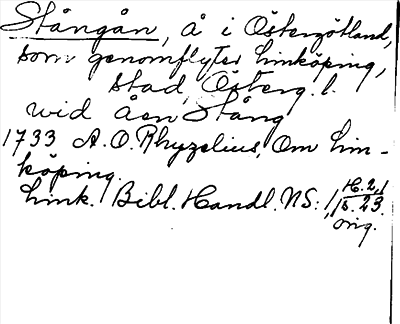 Stångån, å i Östergötland,
som genomflyter Linköping,
stad, Österg. l.
wid åen Stång
1733 A. O. Rhyzelius, Om Lin-
köping.
Link. Bibl. Handl. NS: 1, H. 2,
s. 23.
orig.